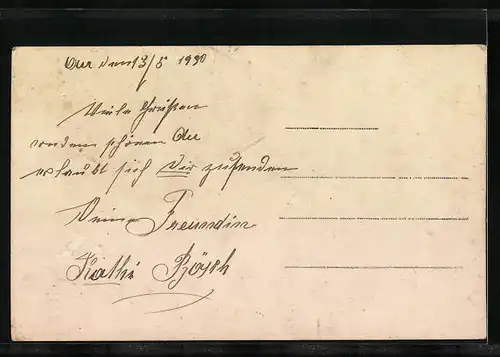 Au den 13/5 1930
Viele Grüßen
von dem schönen Au
erlaubt sich Dir zu senden
Deine Freundin
Kathi Bösch